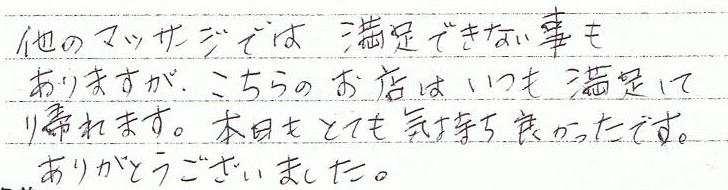 他のマッサージでは 満足できない事も
ありますが、こちらの お店は いつも 満足して
帰れます。本日も とても 気持ち 良かったです。
ありがとうございました。